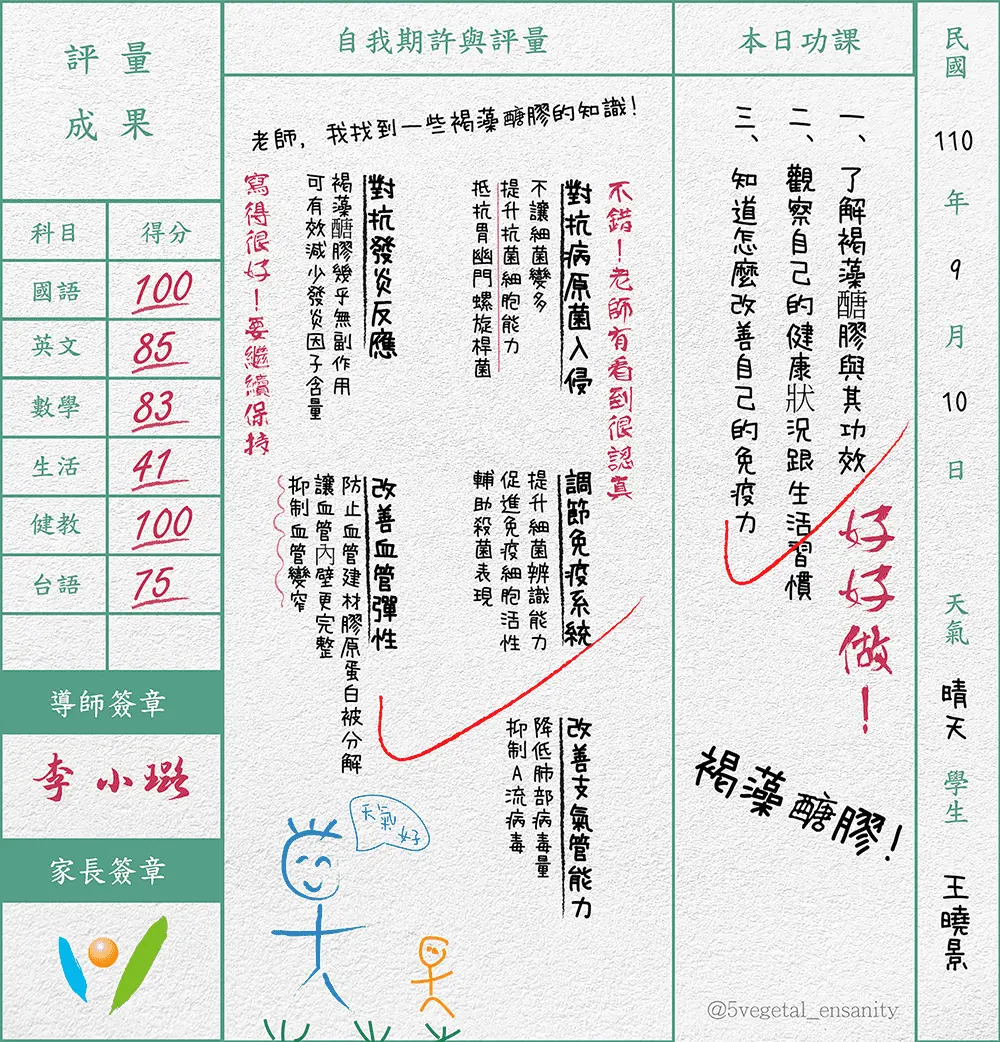 民國110年9月10日 天氣 晴天 學生 王曉景
本日功課
一、了解褐藻醣膠與其功效
二、觀察自己的健康狀況跟生活習慣
三、知道怎麼改善自己的免疫力
好好做！
褐藻醣膠！
@5vegetal_ensanity
自我期許與評量
老師，我找到一些褐藻醣膠的知識！
不錯！老師有看到很認真
對抗病原菌入侵
不讓細菌變多
提升抗菌細胞能力
抵抗胃幽門螺旋桿菌
調節免疫系統
提升細菌辨識能力
促進免疫細胞活性
輔助殺菌表現
改善支氣管能力
降低肺部病毒量
抑制A流病毒
對抗發炎反應
褐藻醣膠幾乎無副作用
可有效減少發炎因子含量
改善血管彈性
防止血管建材膠原蛋白被分解
讓血管內壁更完整
抑制血管變窄
寫得很好！要繼續保持
天氣好
評量
成果
科目 得分
國語 100
英文 85
數學 83
生活 41
健教 100
台語 75
導師簽章
李小璐
家長簽章